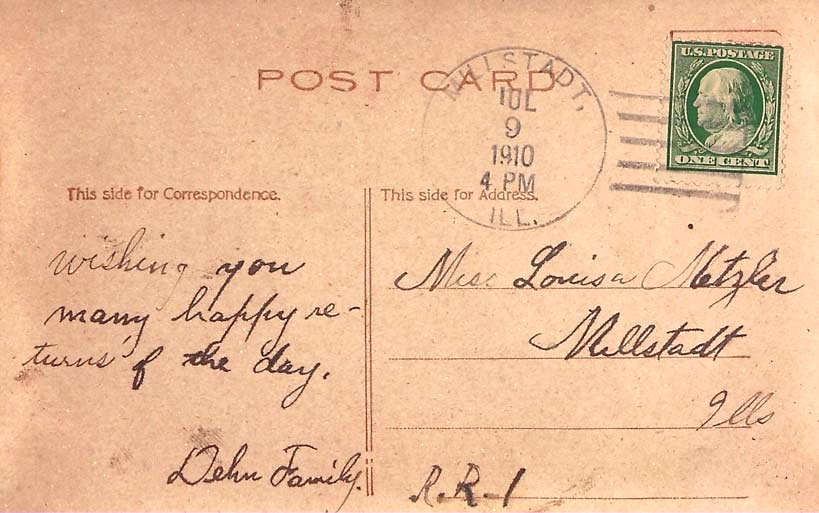 POST CARD
MILLSTADT,
JUL
9
1910
4 PM
ILL.
U.S. POSTAGE
ONE CENT
This side for Correspondence.
This side for Address.
wishing you
many happy re-
turns of the day.
Dehn Family.
Miss Louisa Metzler
Millstadt
Ills
R.R.1